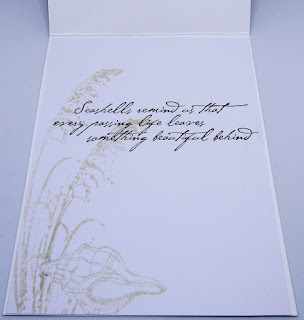 Seashells remind us that
every passing life leaves
something beautiful behind